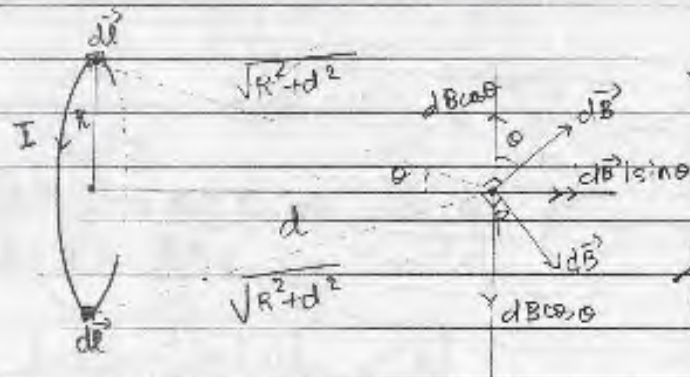 dl⃗
√R²+d²
dBcosθ
dB⃗
I
R
θ
θ
dB⃗ sinθ
d
dB⃗
√R²+d²
dBcosθ
dl⃗